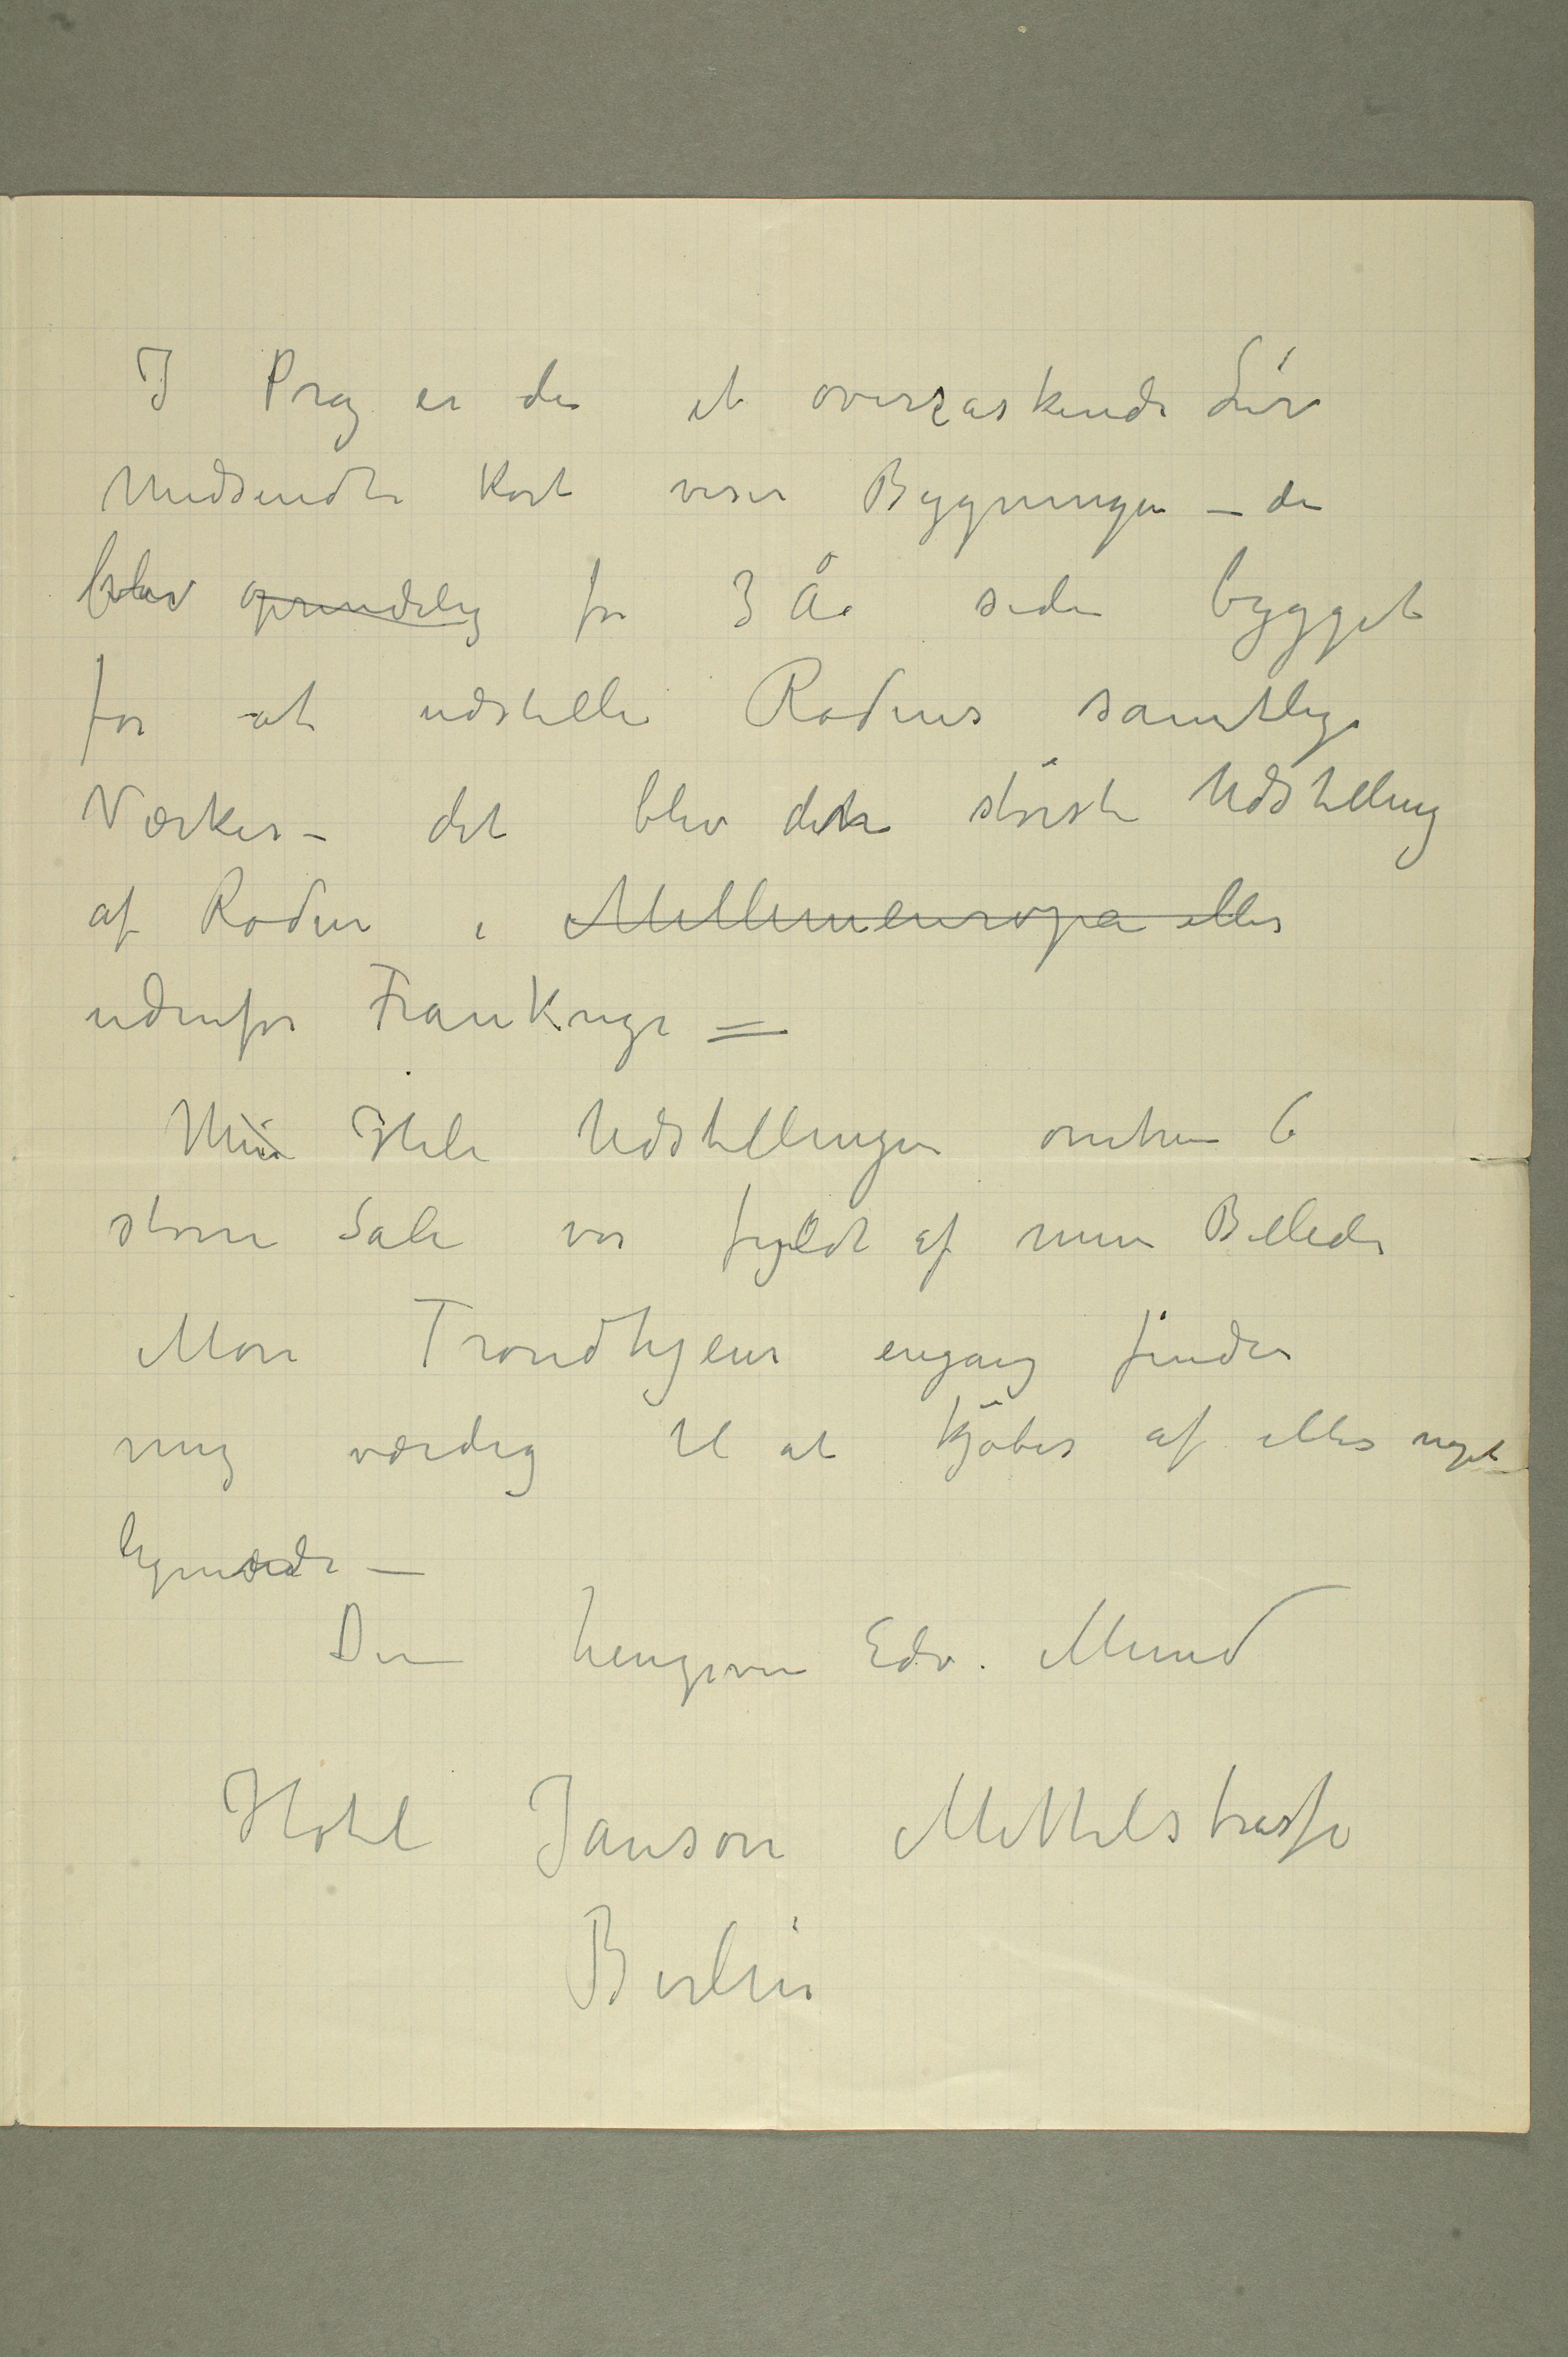 I Prag er der et overraskende Liv
Medsendte Kort viser Bygningen – den
blev oprindelig for 3 År siden bygget
for at udstille Rodins samtlige
Værker – det blev den störste Udstilling
af Rodin i Mellemeuropa eller
udenfor Frankrige =
Min Hele Udstillingen omtrent 6
store Sale var fyldt af mine Billeder
Mon Trondhjem engang finder
mig værdig til at kjöbes af eller noget
lignende –
Din hengivne Edv. Munch
Hotel Janson Mittelstrasse
Berlin